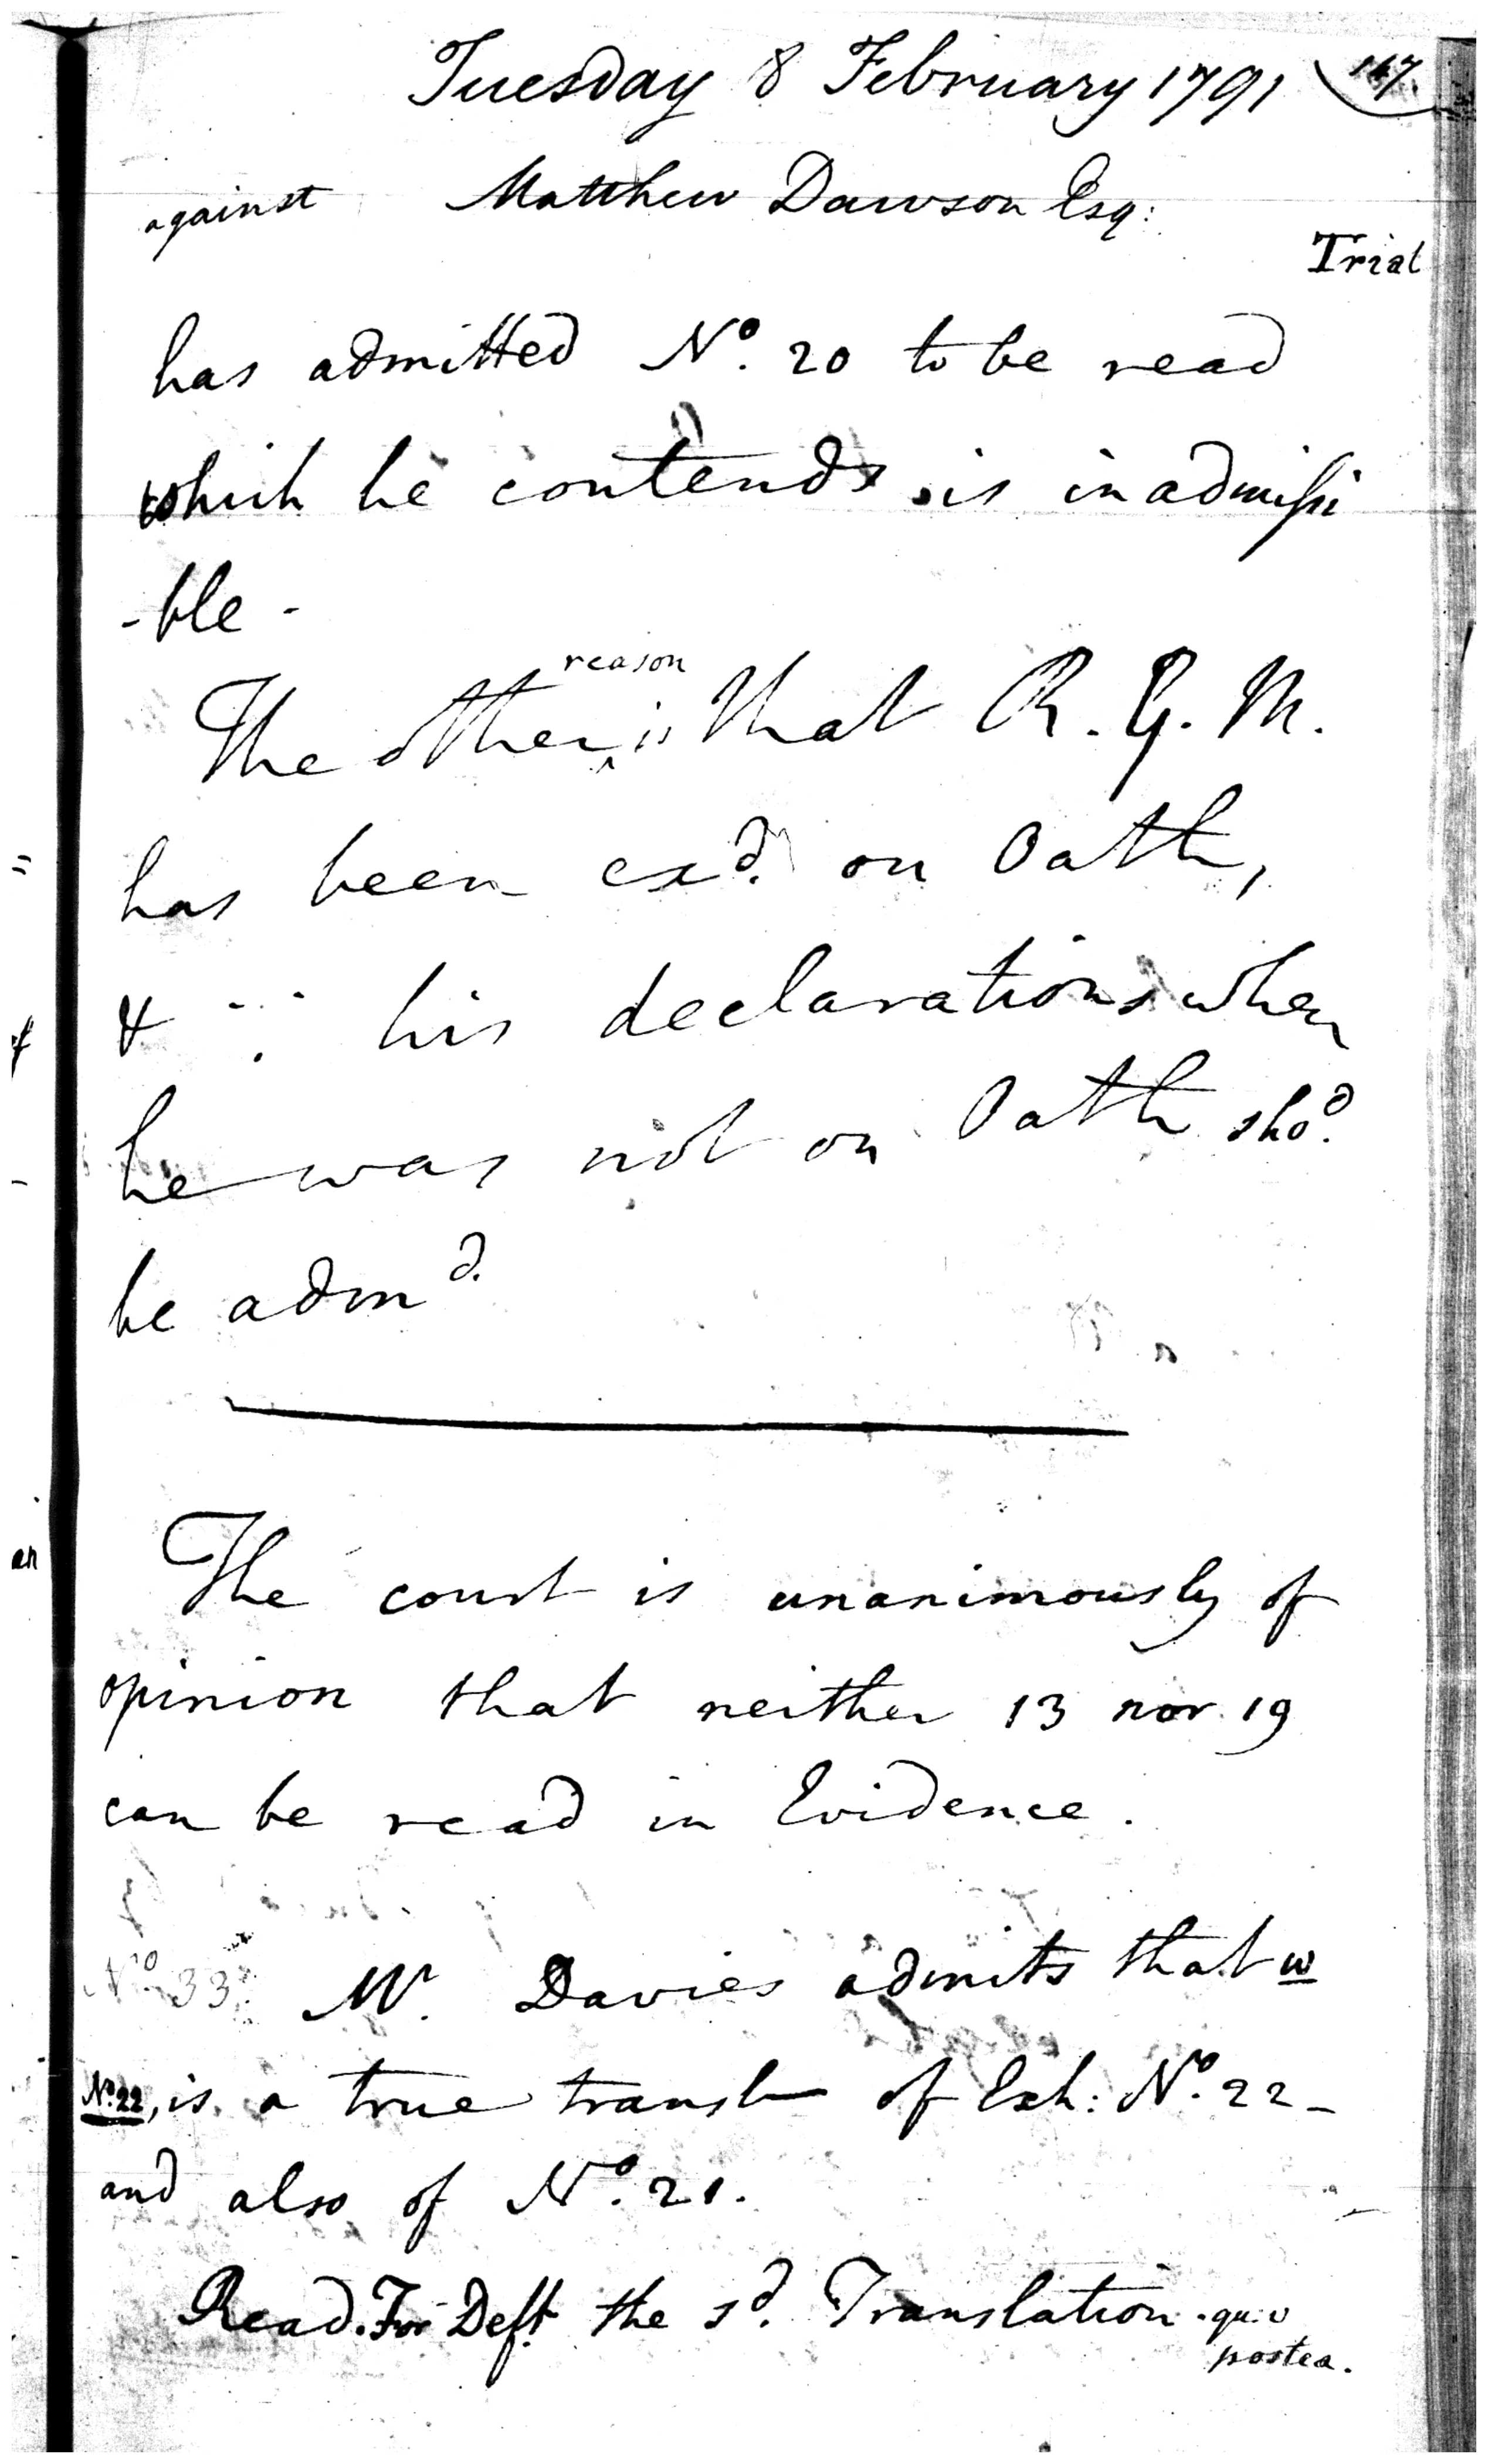 Tuesday 8 February 1791 147
against Matthew Dawson Esq:
Trial
has admitted No. 20 to be read
which he contends is inadmissi
-ble -
reason
The other ^ is that R. G. M.
has been exd. on Oath,
& ∵ his declarations when
he was not on Oath shod.
be admd.
The court is unanimously of
opinion that neither 13 nor 19
can be read in Evidence.
No. 33. Mr. Davies admits that w
No. 22, is a true transl of Exh: No. 22 -
and also of No. 21.
Read. For Deft the sd. Translation. qu: v
postea.